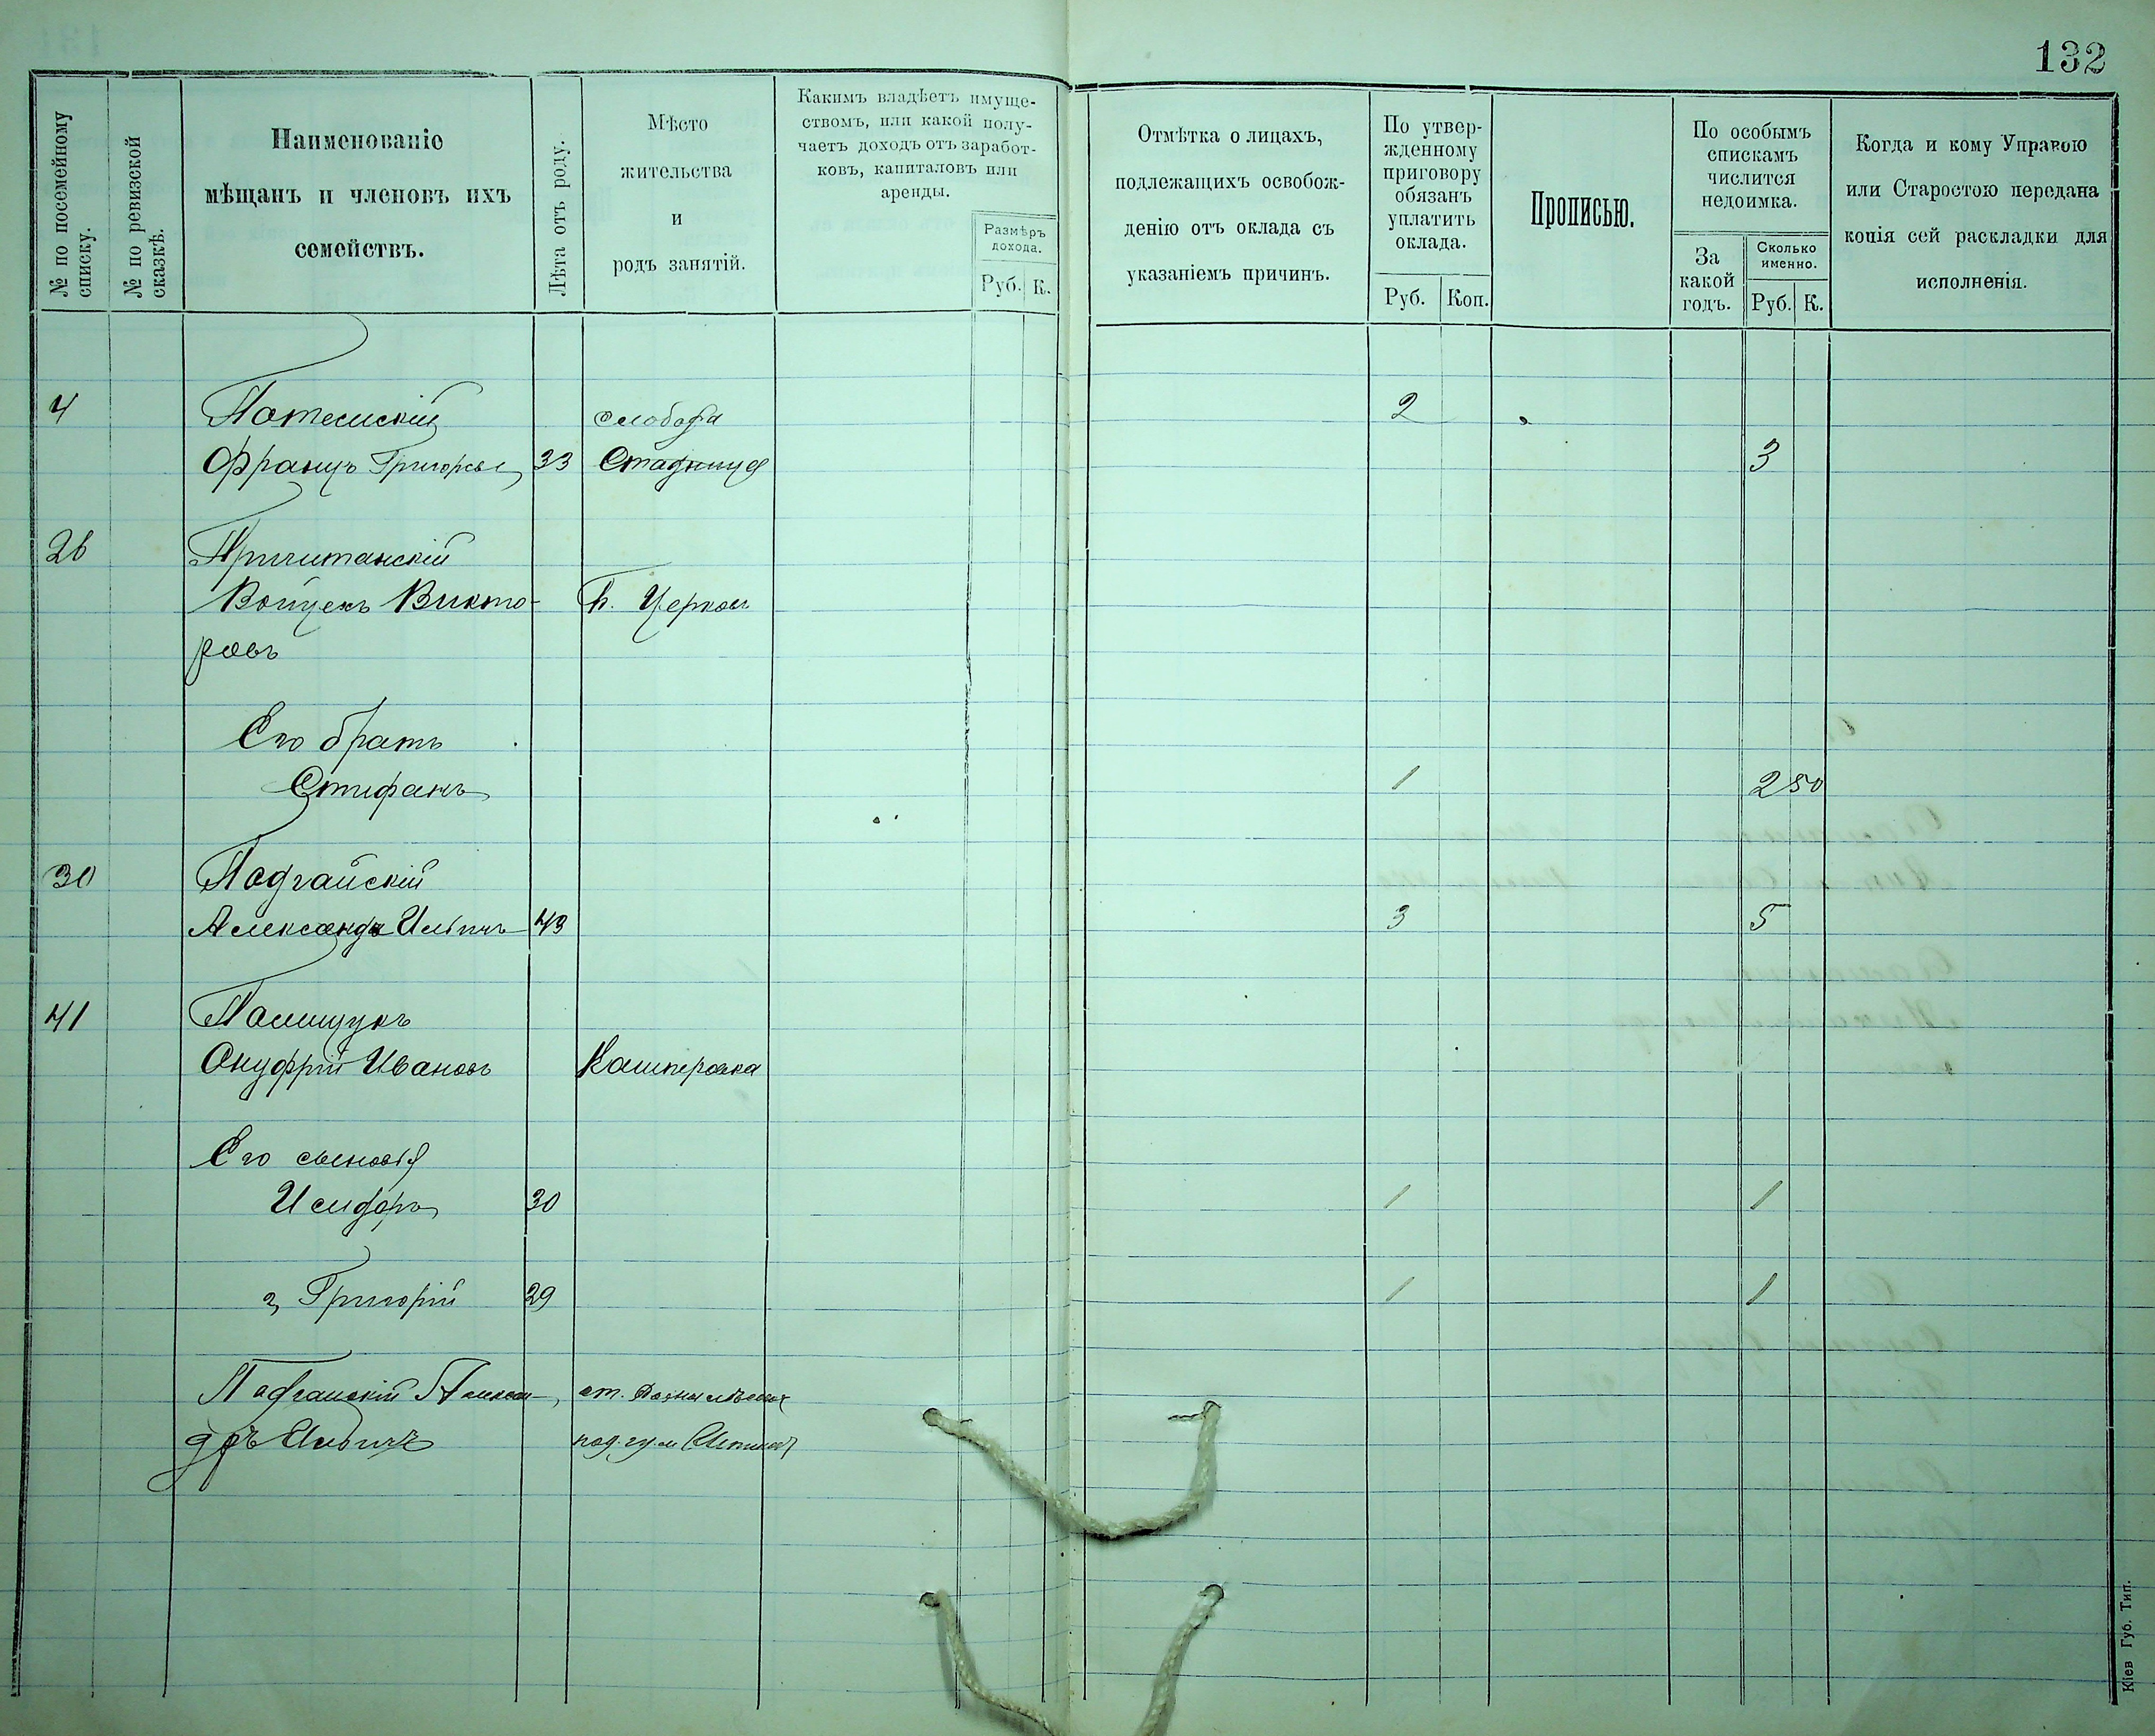 132
№ по посемейному
списку.
№ по ревизской
сказкѣ.
Наименованіе
мѣщанъ и членовъ ихъ
семействъ.
Лѣта отъ роду.
Мѣсто
жительства
и
родъ занятій.
Какимъ владѣетъ имуще-
ствомъ, или какой полу-
чаетъ доходъ отъ заработ-
ковъ, капиталовъ или
аренды.
Размѣръ
дохода.
Руб. К.
Отмѣтка о лицахъ,
подлежащихъ освобож-
денію отъ оклада съ
указаніемъ причинъ.
По утвер-
жденному
приговору
обязанъ
уплатить
оклада.
Руб. Коп.
Прописью.
По особымъ
спискамъ
числится
недоимка.
За
какой
годъ.
Сколько
именно.
Руб. К.
Когда и кому Управою
или Старостою передана
копія сей раскладки для
исполненія.
4 слобода 2
Францъ Григорьев 33 Стадница 3
26
Войцехъ Викто- Б. Церковь
ровъ
Его братъ
Стифанъ 1 2 50
30 Подгайскій
Александръ Ильичъ 43 3 5
41 Полищукъ
Онуфрій Ивановъ Кашперовка
Его сыновья
Исидоръ 30 1 1
2, Григорій 29 1 1
Подгайскій Алексан- ст.
дръ Ильичъ
Кіев Губ. Тип.